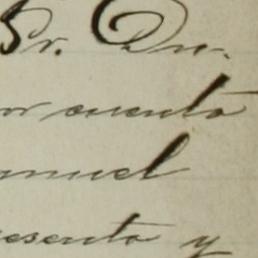 Sr. Dn.
or cuenta
anuel
esenta y